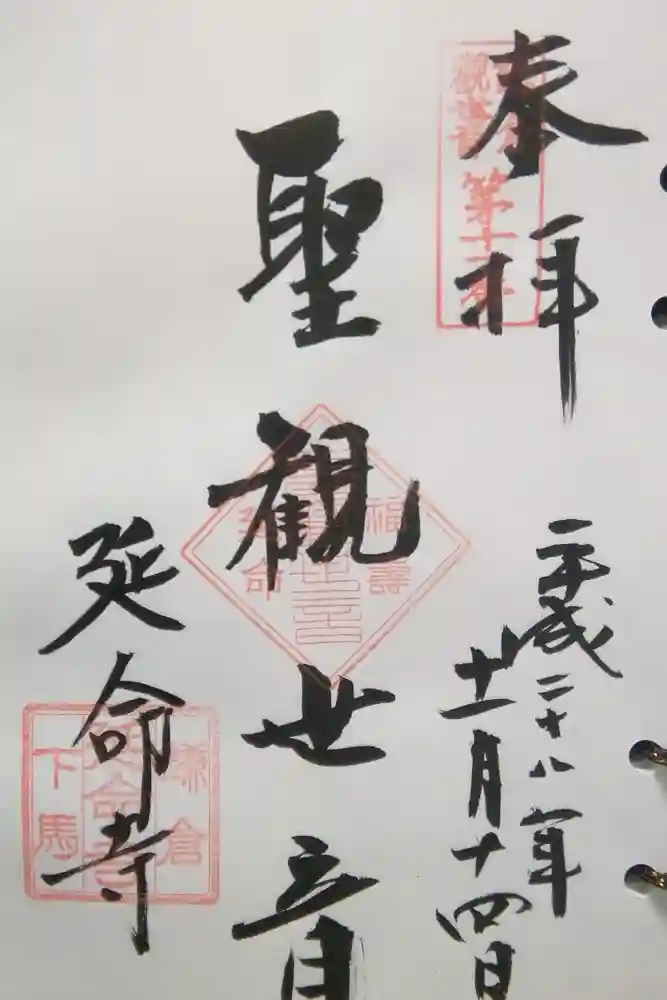 奉拝
第十二番
平成二十八年
十一月十四日
聖観世音
福壽
延命寺
鎌倉
延命寺
下馬